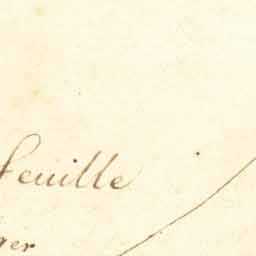 feuille
ger